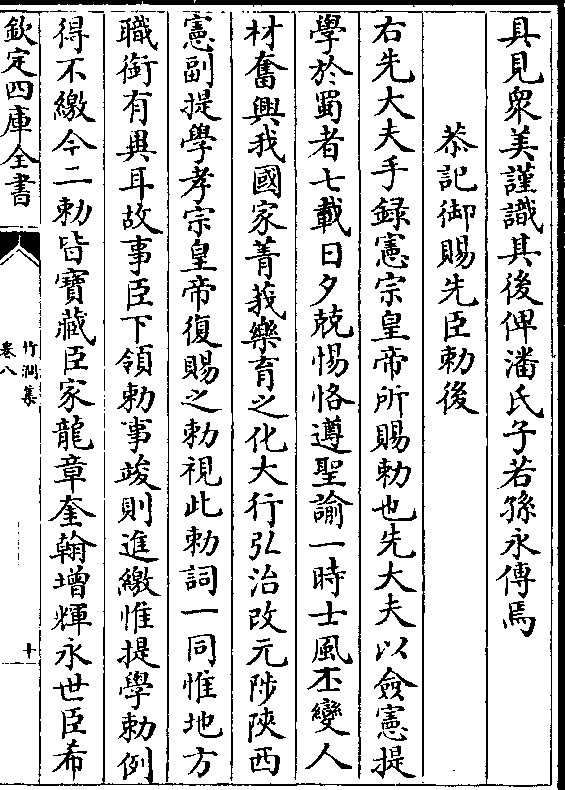 具見衆美謹識其後俾潘氏子若孫永傳焉
恭記御賜先臣勅後
右先大夫手録憲宗皇帝所賜勅也先大夫以僉憲提
學於蜀者七載日夕兢惕恪遵聖諭一時士風丕變人
材奮興我國家菁莪樂育之化大行弘治改元陟陜西
憲副提學孝宗皇帝復賜之勅視此勅詞一同惟地方
職銜有異耳故事臣下領勅事竣則進繳惟提學勅例
得不繳今二勅皆寶藏臣家龍章奎翰增輝永世臣希
欽定四庫全書
竹澗集
卷八
十